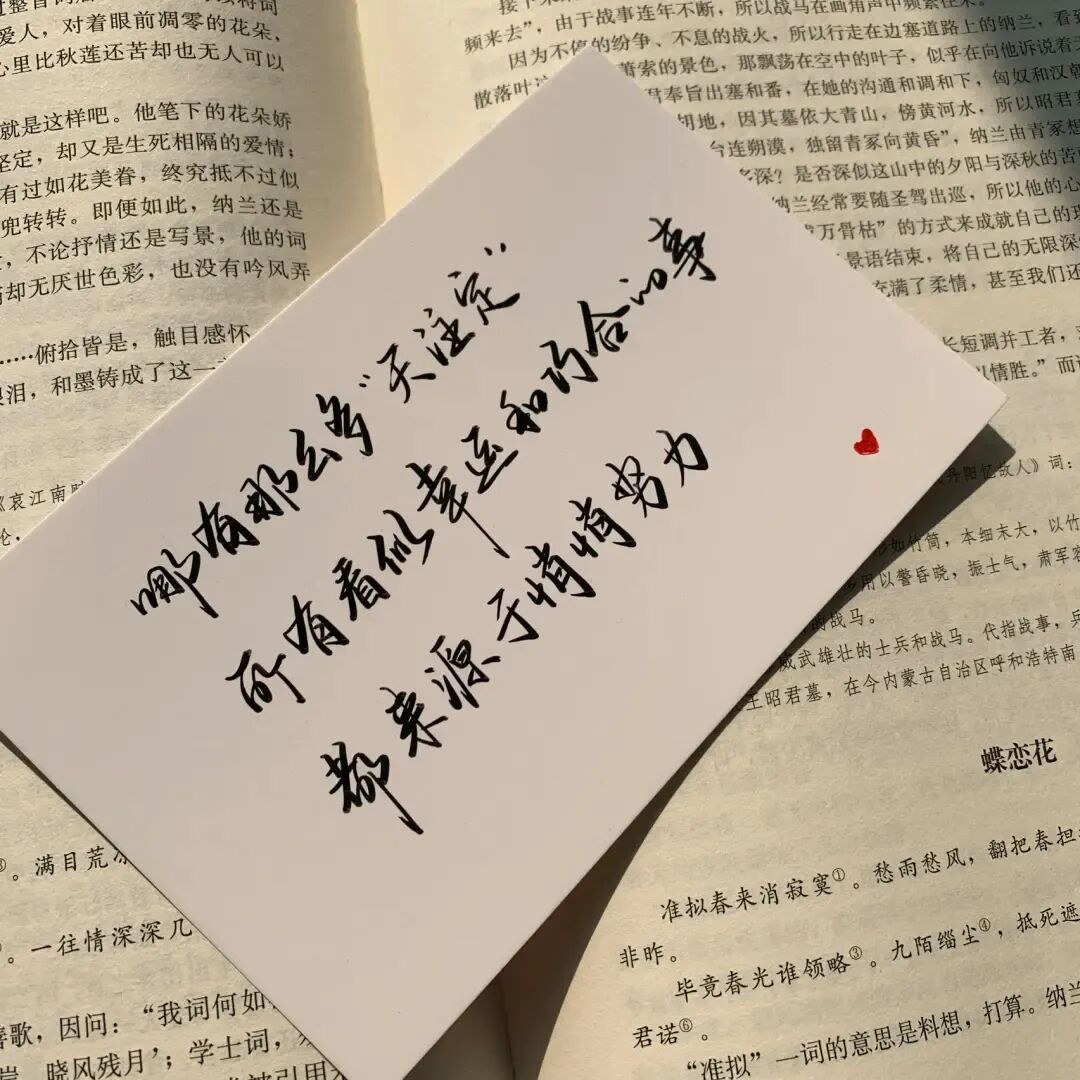 爱人，对着眼前凋零的花朵，
心里比秋莲还苦却也无人可以
就是这样吧。他笔下的花朵娇
坚定，却又是生死相隔的爱情；
有过如花美眷，终究抵不过似
兜转转。即便如此，纳兰还是
，不论抒情还是写景，他的词
却无厌世色彩，也没有吟风弄
……俯拾皆是，触目感怀
泪，和墨铸成了这一
《哀江南
论，
。满目荒
。一往情深深几
善歌，因问：“我词何如
岸、晓风残月’；学士词，
频来去”，由于战事连年不断，所以战马在画角声中频繁往来。
因为不停的纷争、不息的战火，所以行走在边塞道路上的纳兰，看到
散落叶 萧索的景色，那飘荡在空中的叶子，似乎在向他诉说着
君奉旨出塞和番，在她的沟通和调和下，匈奴和汉朝
胡地，因其墓依大青山，傍黄河水，所以昭君
台连朔漠，独留青冢向黄昏”，纳兰由青冢想
多深？是否深似这山中的夕阳与深秋的苦
纳兰经常要随圣驾出巡，所以他的心
万骨枯”的方式来成就自己的
景语结束，将自己的无限深
充满了柔情，甚至我们还
长短调并工者，
情胜。”而
丹阳忆故人》词：
形如竹筒，本细末大，以竹
多用以警昏晓，振士气，肃军容
的战马。
威武雄壮的士兵和战马。代指战事，
王昭君墓，在今内蒙古自治区呼和浩特南
蝶恋花
准拟春来消寂寞①。愁雨愁风，翻把春担
非昨。
毕竟春光谁领略③。九陌缁尘④，抵死遮
君诺⑥。
“准拟”一词的意思是料想，打算。纳兰
哪有那么多“天注定”
所有看似幸运和巧合的事
都来源于悄悄努力